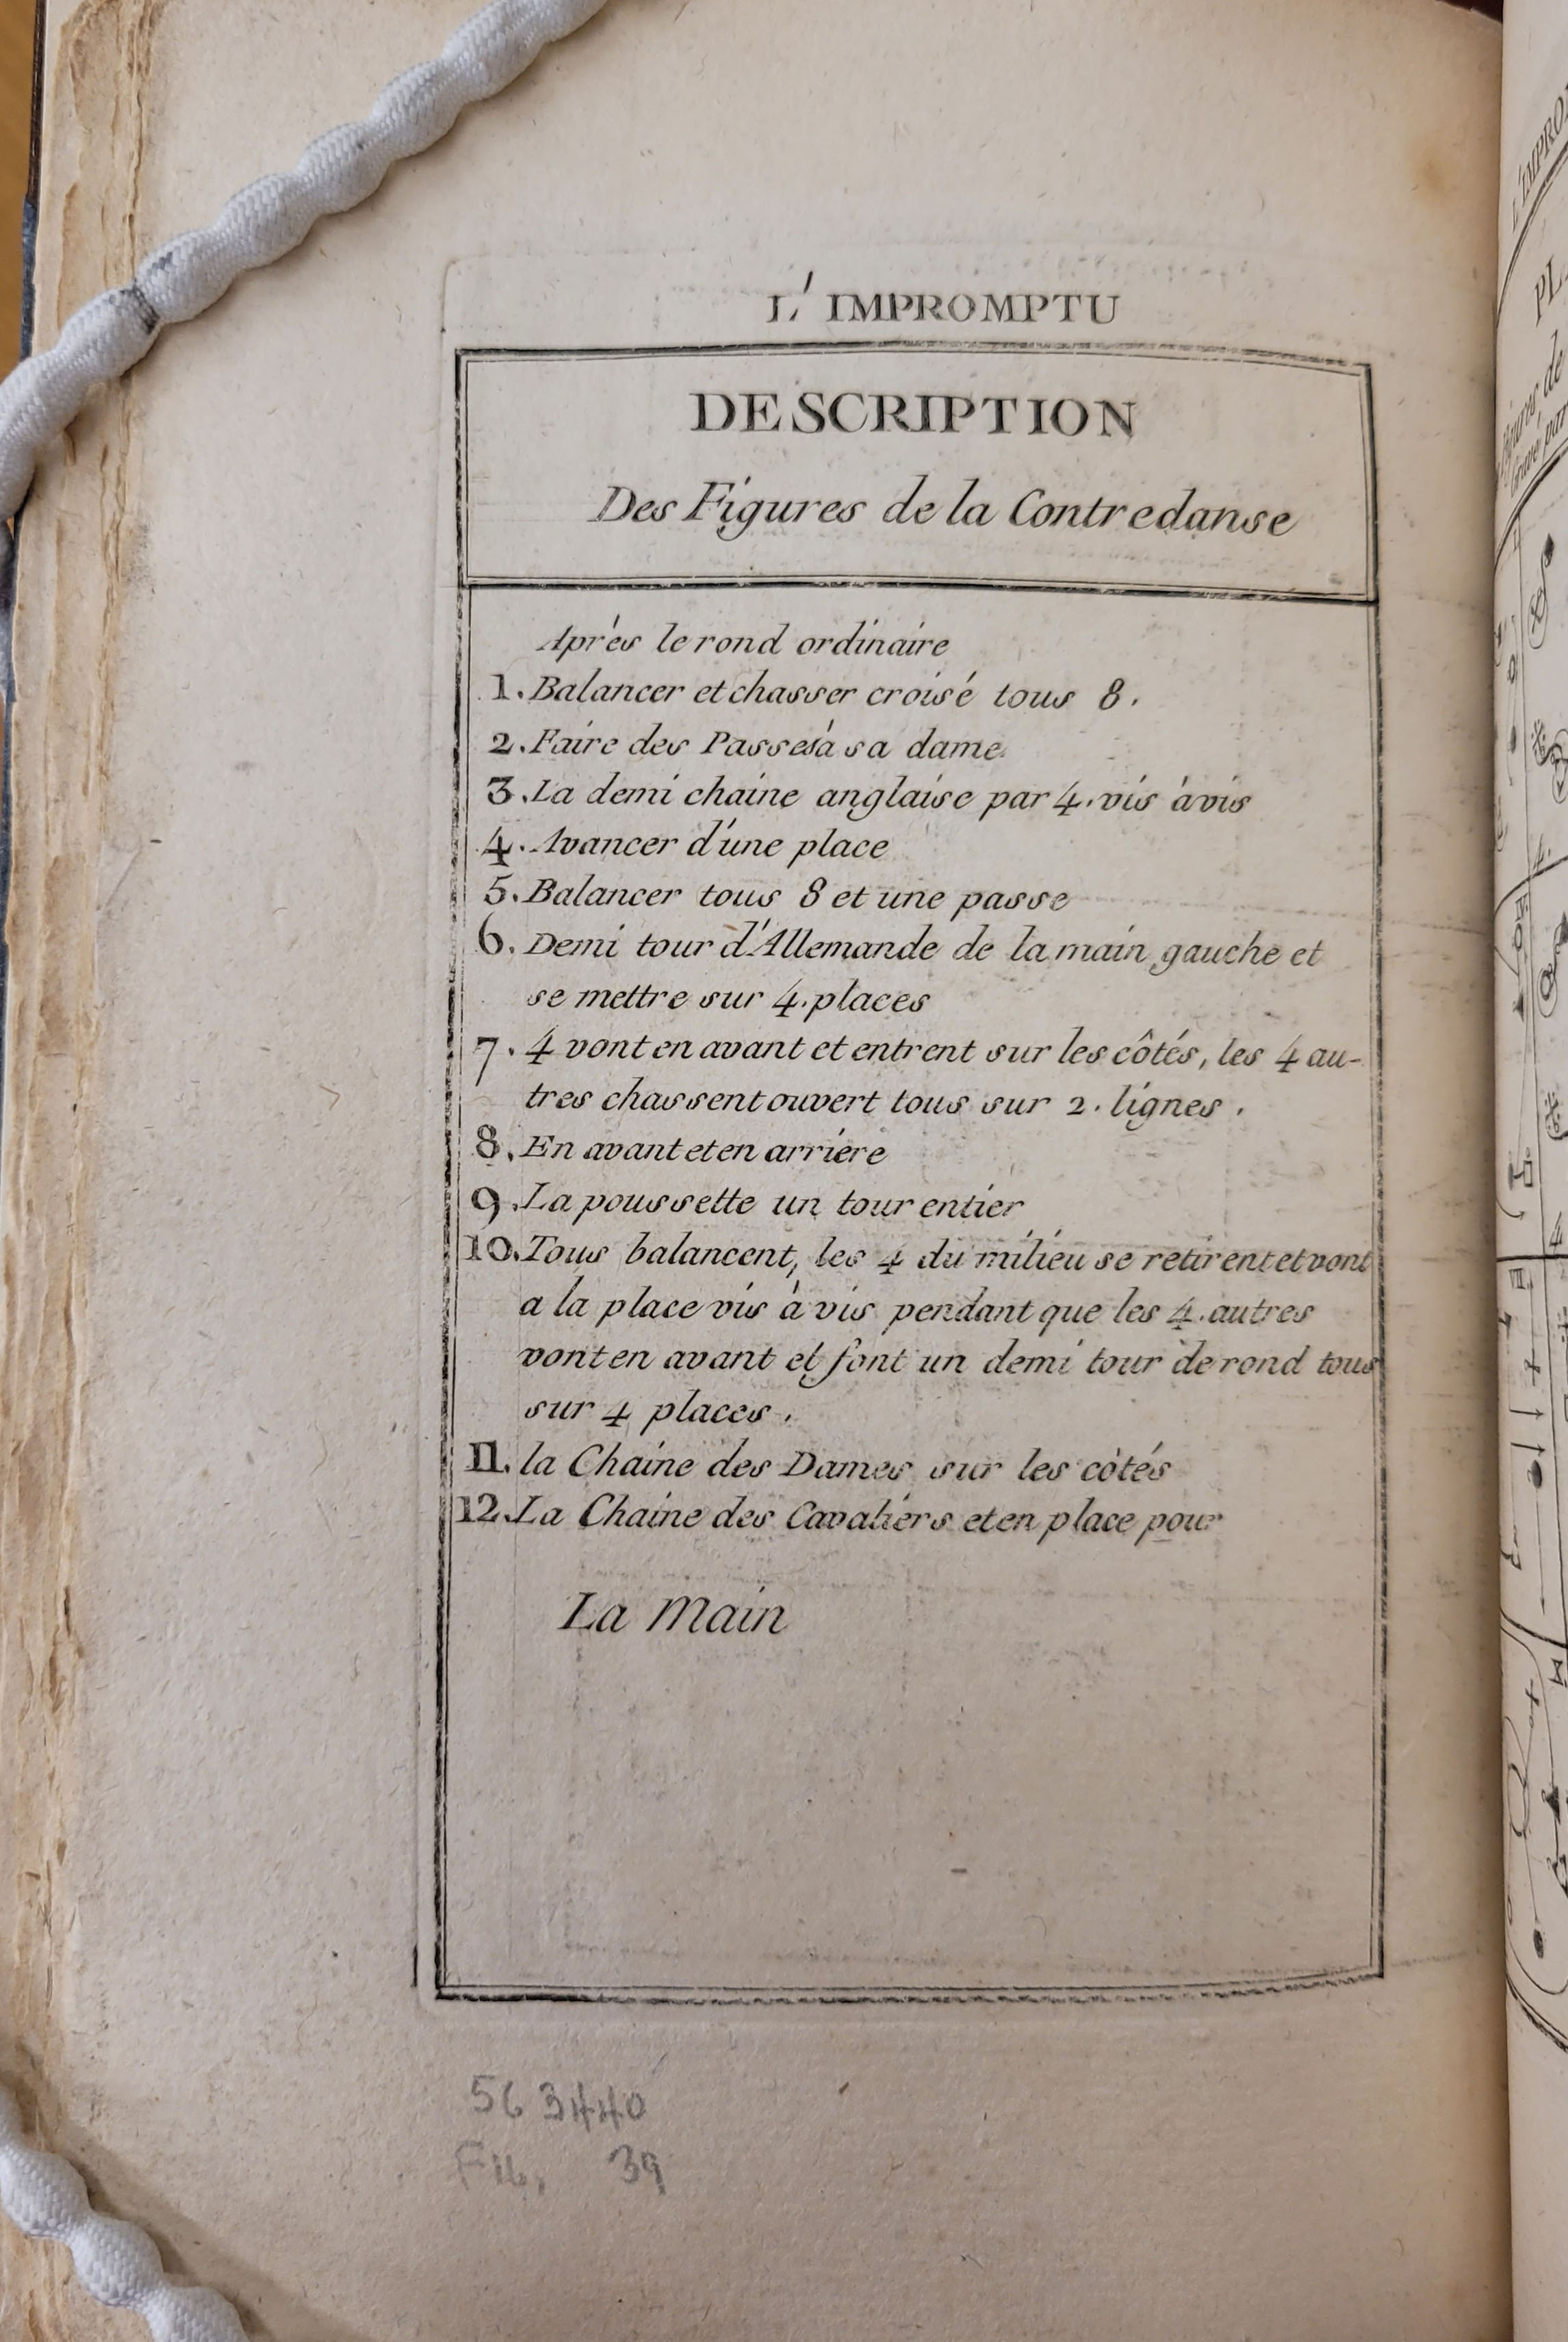 L'IMPROMPTU
DESCRIPTION
Des Figures de la Contredanse
Après le rond ordinaire
1. Balancer et chasser croisé tous 8.
2. Faire des Passes à sa dame
3. La demi chaine anglaise par 4. vis à vis
4. Avancer d'une place
5. Balancer tous 8 et une passe
6. Demi tour d'Allemande de la main gauche et
se mettre sur 4. places
7. 4 vont en avant et entrent sur les côtés, les 4 au-
tres chassent ouvert tous sur 2. lignes.
8. En avant et en arriere
9. La poussette un tour entier
10. Tous balancent, les 4 du milieu se retirent et vont
a la place vis à vis pendant que les 4. autres
vont en avant et font un demi tour de rond tous
sur 4 places.
11. la Chaine des Dames sur les côtés
12. La Chaine des Cavaliers et en place pour
La Main
563440
39
L'IMPRO
PL